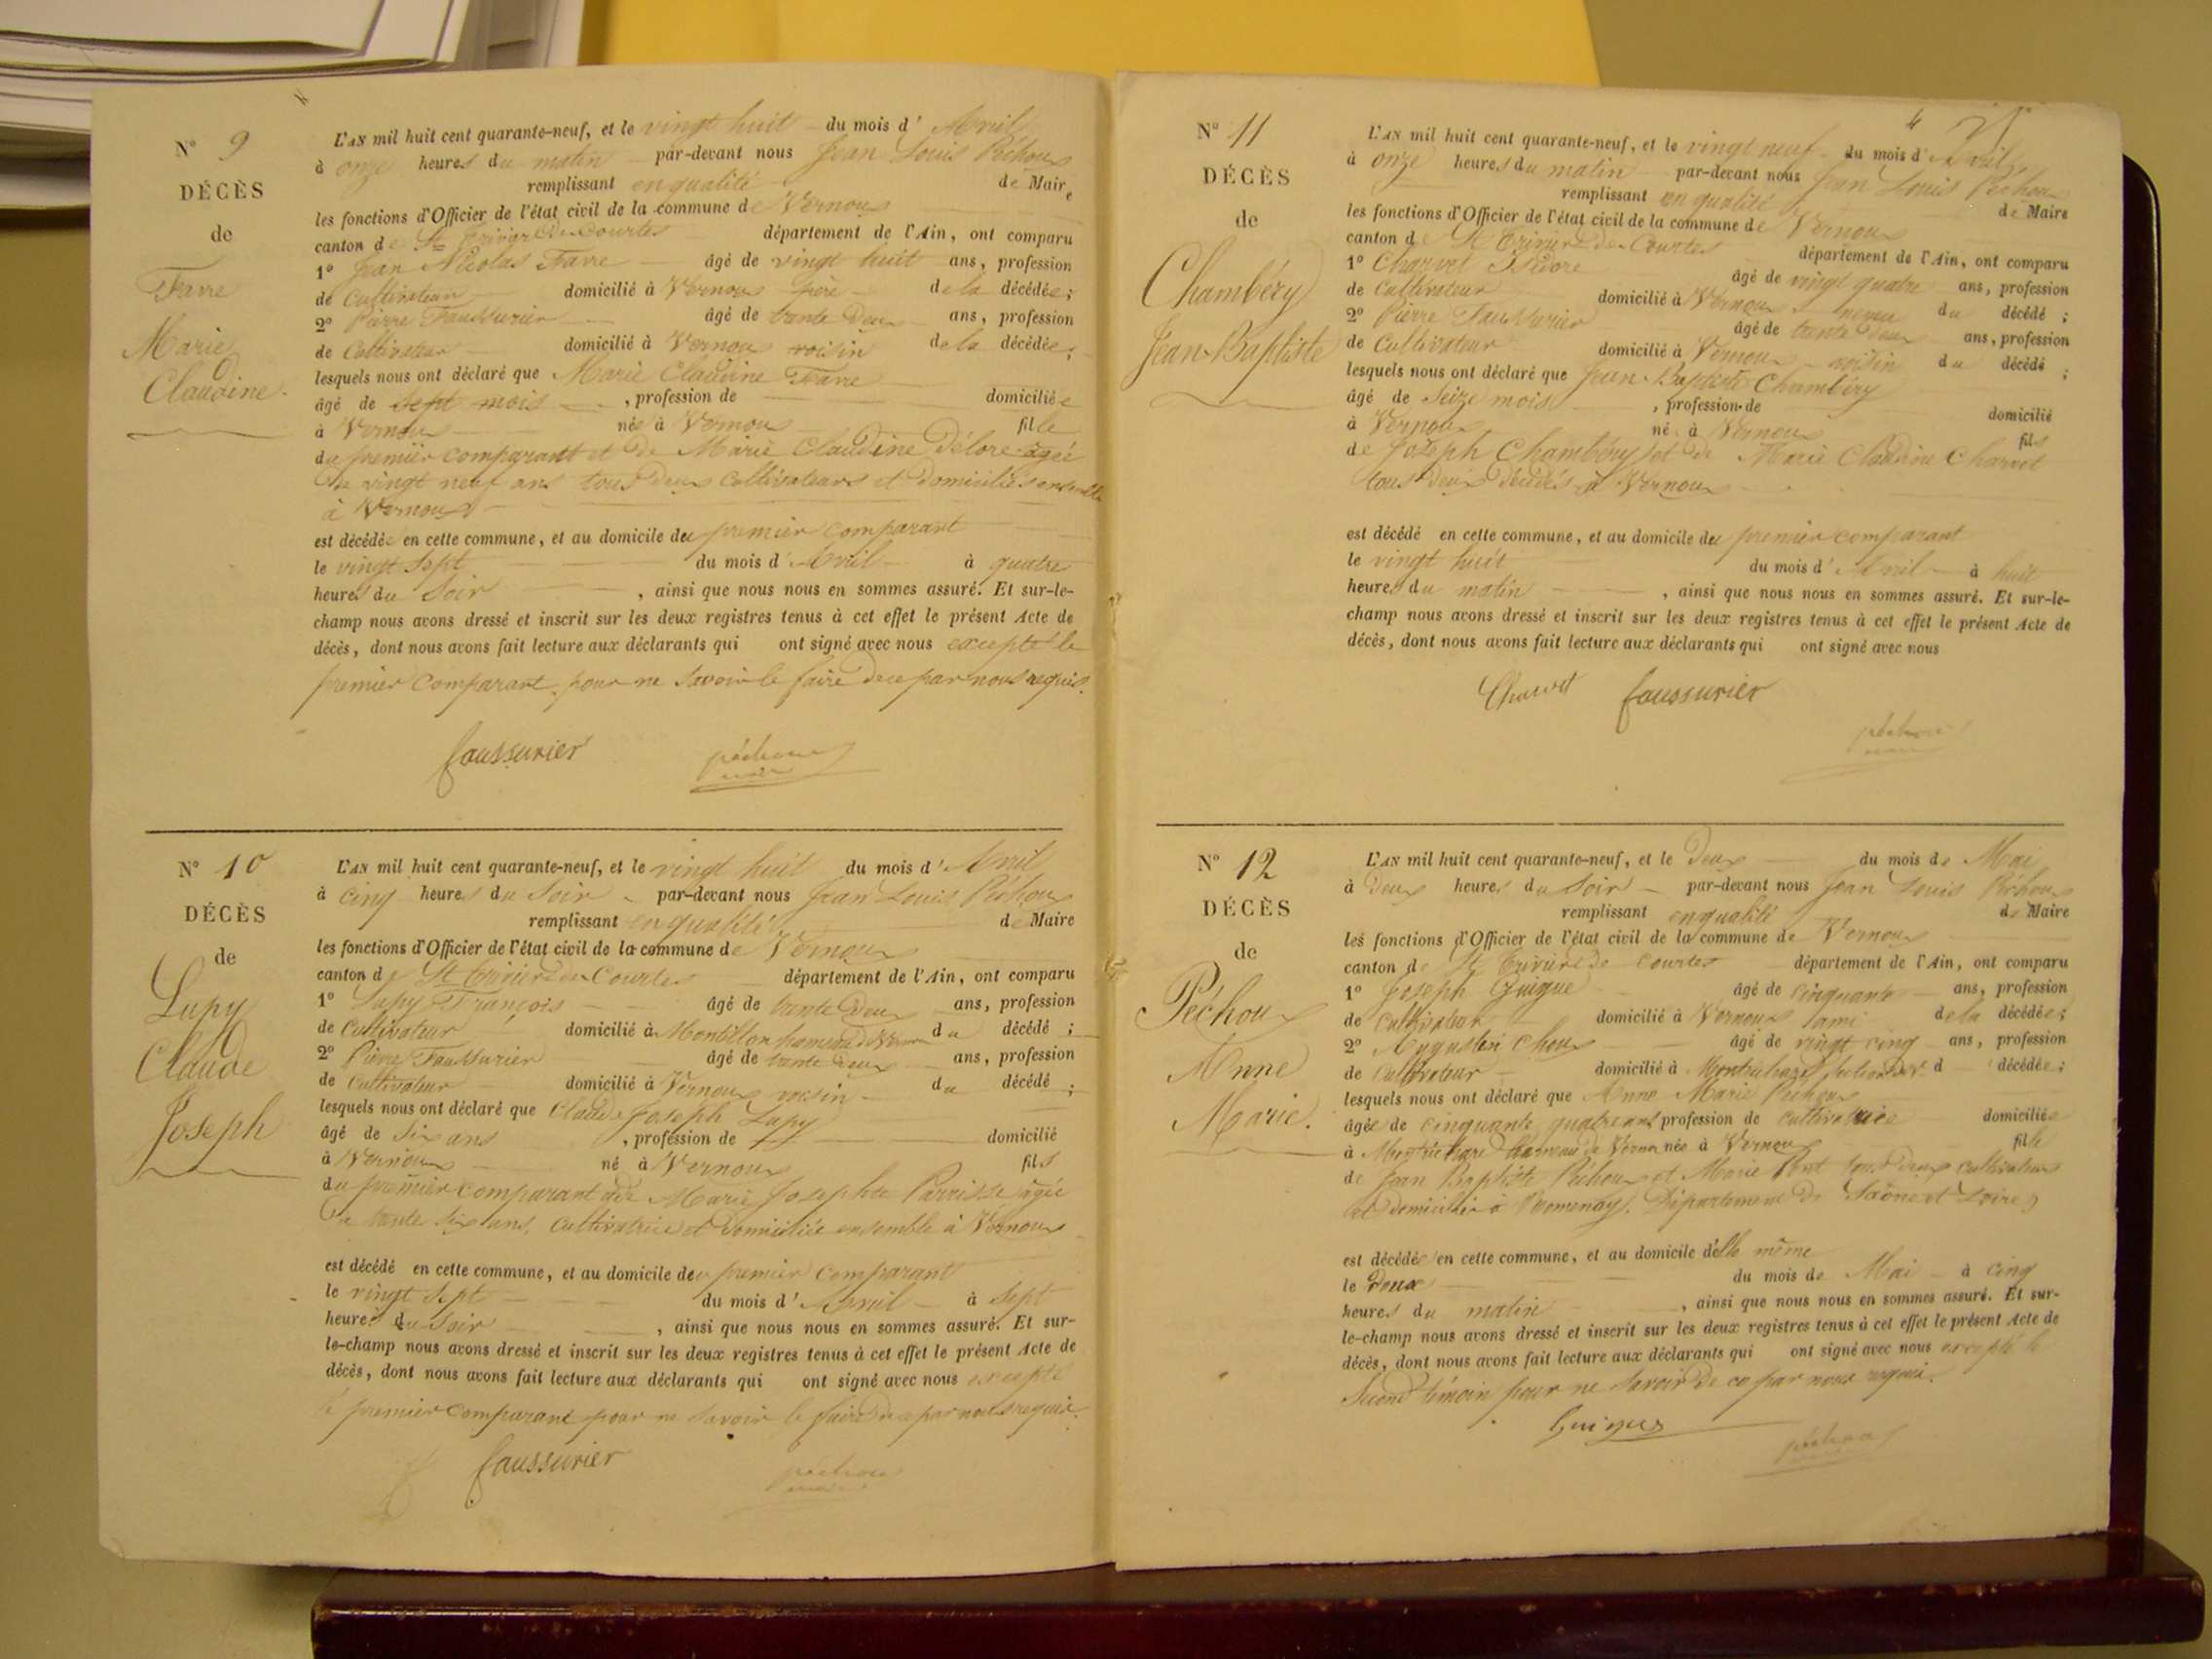 Nº 9
DÉCÈS
de
Favre
Marie
Claudine.
L'AN mil huit cent quarante-neuf, et le vingt huit du mois d'Avril
à onze heures du matin par-devant nous Jean Louis Péchoux
remplissant en qualité de Maire
les fonctions d'Officier de l'état civil de la commune de Vernoux
canton de St Trivier de Courtes département de l'Ain, ont comparu
1º Jean Nicolas Favre âgé de vingt huit ans, profession
de Cultivateur domicilié à Vernoux père de la décédée;
2º Pierre Faussurier âgé de trente deux ans, profession
de Cultivateur domicilié à Vernoux voisin de la décédée;
lesquels nous ont déclaré que Marie Claudine Favre
âgé de sept mois, profession de domiciliée
à Vernoux née à Vernoux fille
du premier comparant et de Marie Claudine Délore âgée
de vingt neuf ans tous deux Cultivateurs et domiciliés ensemble
à Vernoux
est décédée en cette commune, et au domicile du premier comparant
le vingt Sept du mois d'Avril à quatre
heures du Soir, ainsi que nous nous en sommes assuré. Et sur-le-
champ nous avons dressé et inscrit sur les deux registres tenus à cet effet le présent Acte de
décès, dont nous avons fait lecture aux déclarants qui ont signé avec nous excepté le
premier comparant pour ne savoir le faire de ce par nous requis.
faussurier péchoux
maire
Nº 10
DÉCÈS
de
Lupy
Claude
Joseph
L'AN mil huit cent quarante-neuf, et le vingt huit du mois d'Avril
à cinq heures du Soir par-devant nous Jean Louis Péchoux
remplissant en qualité de Maire
les fonctions d'Officier de l'état civil de la commune de Vernoux
canton de St Trivier de Courtes département de l'Ain, ont comparu
1º Lupy François âgé de trente deux ans, profession
de Cultivateur domicilié à Montillon hameau de Vernoux du décédé;
2º Pierre Faussurier âgé de trente deux ans, profession
de Cultivateur domicilié à Vernoux voisin du décédé;
lesquels nous ont déclaré que Claude Joseph Lupy
âgé de Six ans, profession de domicilié
à Vernoux né à Vernoux fils
du premier comparant et de Marie Josephte Parrisse âgée
de trente Six ans, Cultivatrice et domiciliée ensemble à Vernoux
est décédé en cette commune, et au domicile du premier comparant
le vingt Sept du mois d'Avril à Sept
heures du Soir, ainsi que nous nous en sommes assuré. Et sur-
le-champ nous avons dressé et inscrit sur les deux registres tenus à cet effet le présent Acte de
décès, dont nous avons fait lecture aux déclarants qui ont signé avec nous excepté
le premier comparant pour ne savoir le faire de ce par nous requis.
faussurier péchoux
maire
Nº 11
DÉCÈS
de
Chambéry
Jean-Baptiste
4
L'AN mil huit cent quarante-neuf, et le vingt neuf du mois d'Avril
à onze heures du matin par-devant nous Jean Louis Péchoux
remplissant en qualité de Maire
les fonctions d'Officier de l'état civil de la commune de Vernoux
canton de St Trivier de Courtes département de l'Ain, ont comparu
1º Charvet Isidore âgé de vingt quatre ans, profession
de Cultivateur domicilié à Vernoux neveu du décédé;
2º Pierre Faussurier âgé de trente deux ans, profession
de Cultivateur domicilié à Vernoux voisin du décédé;
lesquels nous ont déclaré que Jean-Baptiste Chambéry
âgé de Seize mois, profession de domicilié
à Vernoux né à Vernoux fils
de Joseph Chambéry et de Marie Claudine Charvet
tous deux décédés à Vernoux
est décédé en cette commune, et au domicile du premier comparant
le vingt huit du mois d'Avril à huit
heures du matin, ainsi que nous nous en sommes assuré. Et sur-le-
champ nous avons dressé et inscrit sur les deux registres tenus à cet effet le présent Acte de
décès, dont nous avons fait lecture aux déclarants qui ont signé avec nous
Charvet faussurier
péchoux
maire
Nº 12
DÉCÈS
de
Péchoux
Anne
Marie.
L'AN mil huit cent quarante-neuf, et le Deux du mois de Mai
à Deux heures du Soir par-devant nous Jean Louis Péchoux
remplissant en qualité de Maire
les fonctions d'Officier de l'état civil de la commune de Vernoux
canton de St Trivier de Courtes département de l'Ain, ont comparu
1º Joseph Guigue âgé de cinquante ans, profession
de Cultivateur domicilié à Vernoux ami de la décédée;
2º Augustin Choux âgé de vingt cinq ans, profession
de Cultivateur domicilié à d décédée;
lesquels nous ont déclaré que Anne Marie Péchoux
âgée de cinquante quatre ans profession de cultivatrice domiciliée
à hameau de Vernoux née à Vernoux fille
de Jean Baptiste Péchoux et Marie Pont tous deux cultivateurs
et domiciliés à Romenay, Département de Saône et Loire
est décédée en cette commune, et au domicile d'elle même
le Deux du mois de Mai à cinq
heures du matin, ainsi que nous nous en sommes assuré. Et sur-
le-champ nous avons dressé et inscrit sur les deux registres tenus à cet effet le présent Acte de
décès, dont nous avons fait lecture aux déclarants qui ont signé avec nous excepté le
Second témoin pour ne savoir de ce par nous requis.
Guigue
péchoux
maire